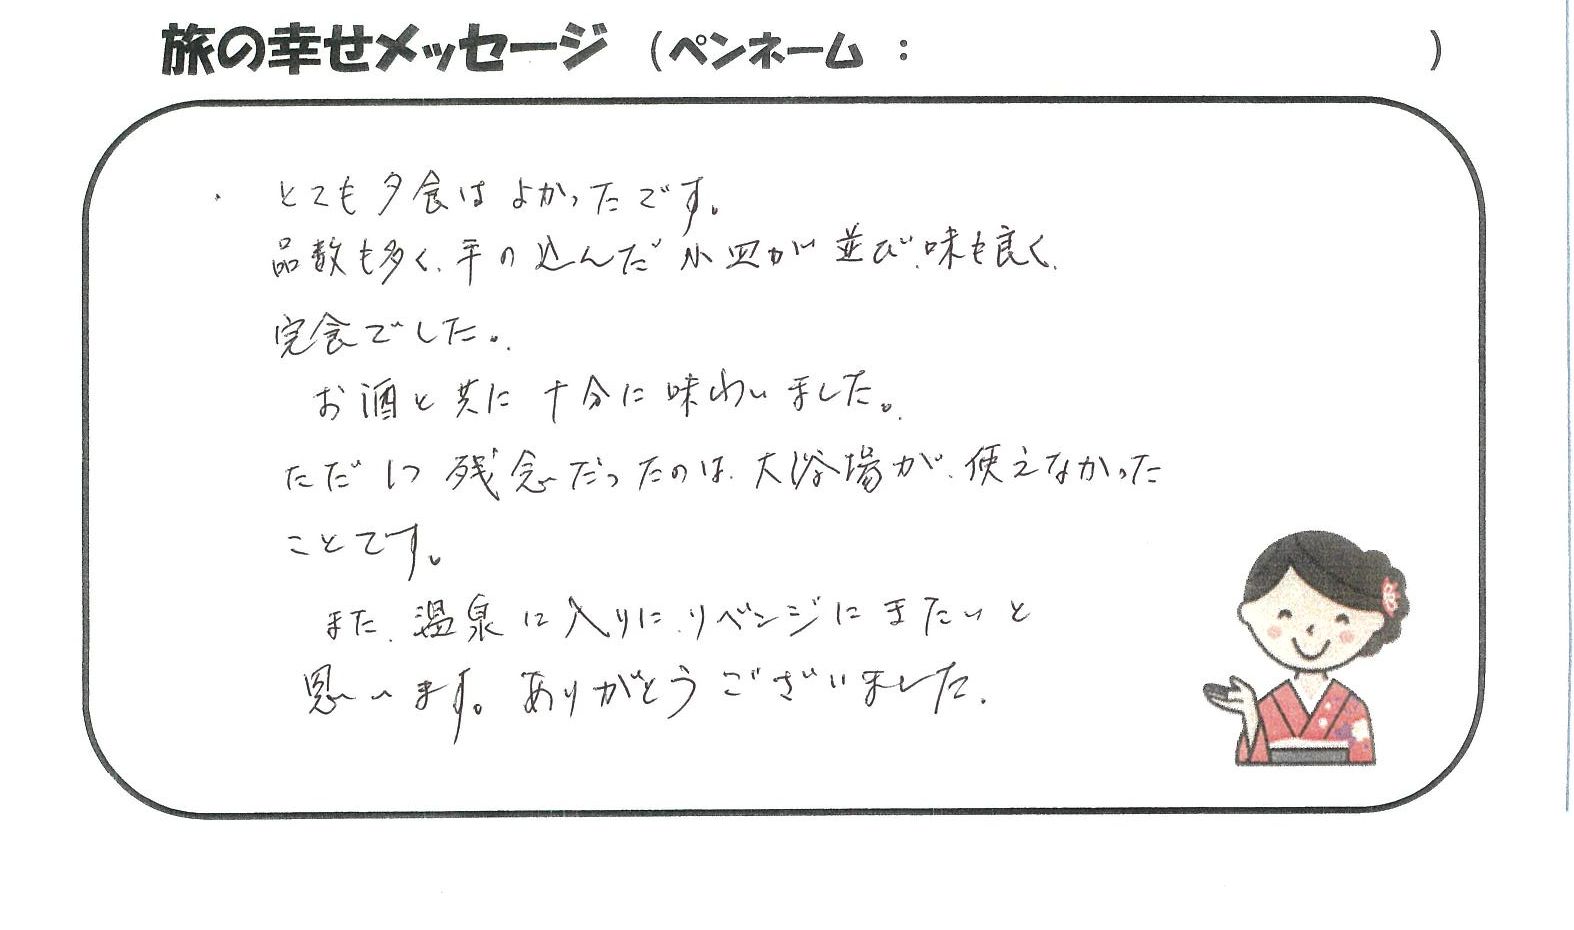 旅の幸せメッセージ （ペンネーム ： ）
・ とても夕食はよかったです。
品数も多く、手の込んだ小皿が並び、味も良く、
完食でした。
お酒と共に十分に味わいました。
ただ1つ残念だったのは、大浴場が、使えなかった
ことです。
また、温泉に入りに、リベンジにきたいと
思います。ありがとうございました。